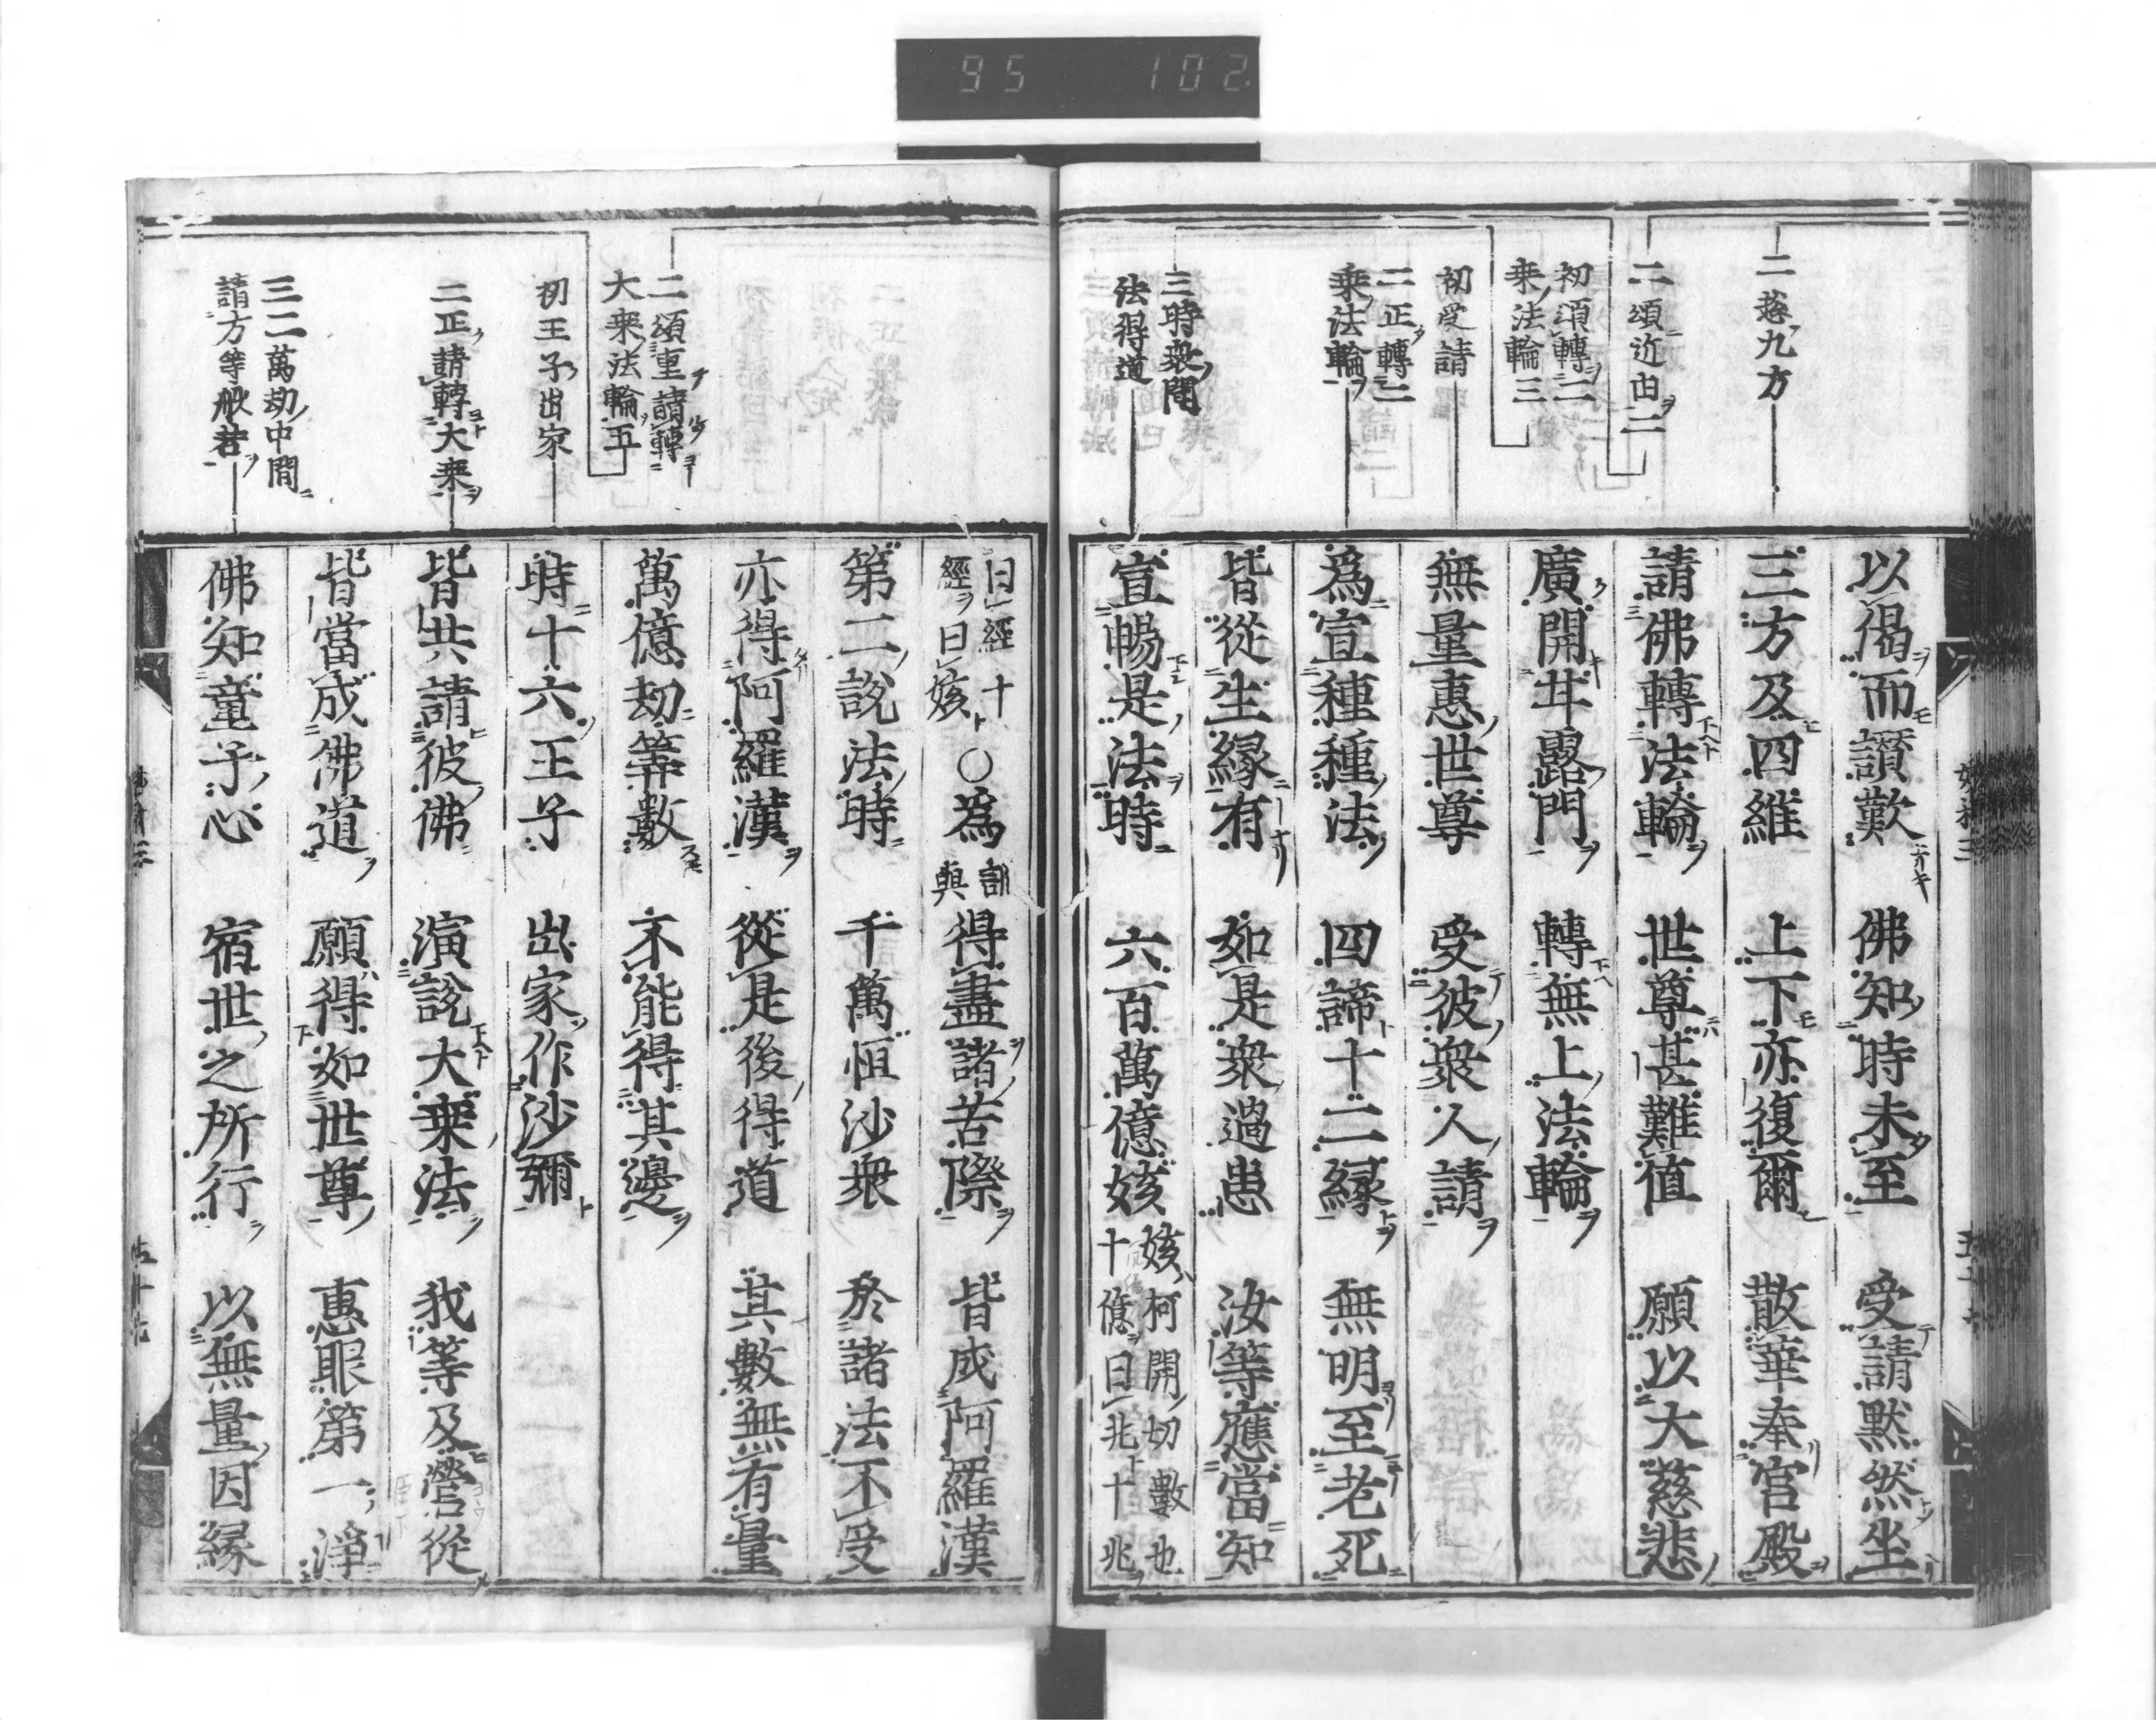 95 102
二䇿九方
二頌近由二
初頌轉二
乗法輪三
初受請
二正轉二
乗法輪
三時衆聞
法得道
以偈而讃歎 佛知時未至 受請黙然坐
三方及四維 上下亦復爾 散華奉宮殿
請佛轉法輪 世尊甚難值 願以大慈悲
廣開甘露門 轉無上法輪
無量惠世尊 受彼衆人請
為宣種種法 四諦十二縁 無明至老死
皆從生縁有 如是衆過患 汝等應當知
宣暢是法時 六百萬億姟 姟柯開切數也
十億曰兆十兆
二頌重請轉
大乗法輪五
初王子出家
二正請轉大乗
三二萬劫中間
請方等般若
曰經十
經曰姟 〇為 訓
與 得盡諸苦際 皆成阿羅漢
第二說法時 千萬恒沙衆 於諸法不受
亦得阿羅漢 從是後得道 其數無有量
萬億劫筭數 不能得其邊
時十六王子 出家作沙彌
皆共請彼佛 演說大乗法 我等及營從
皆當成佛道 願得如世尊 惠眼第一淨
佛知童子心 宿世之所行 以無量因縁